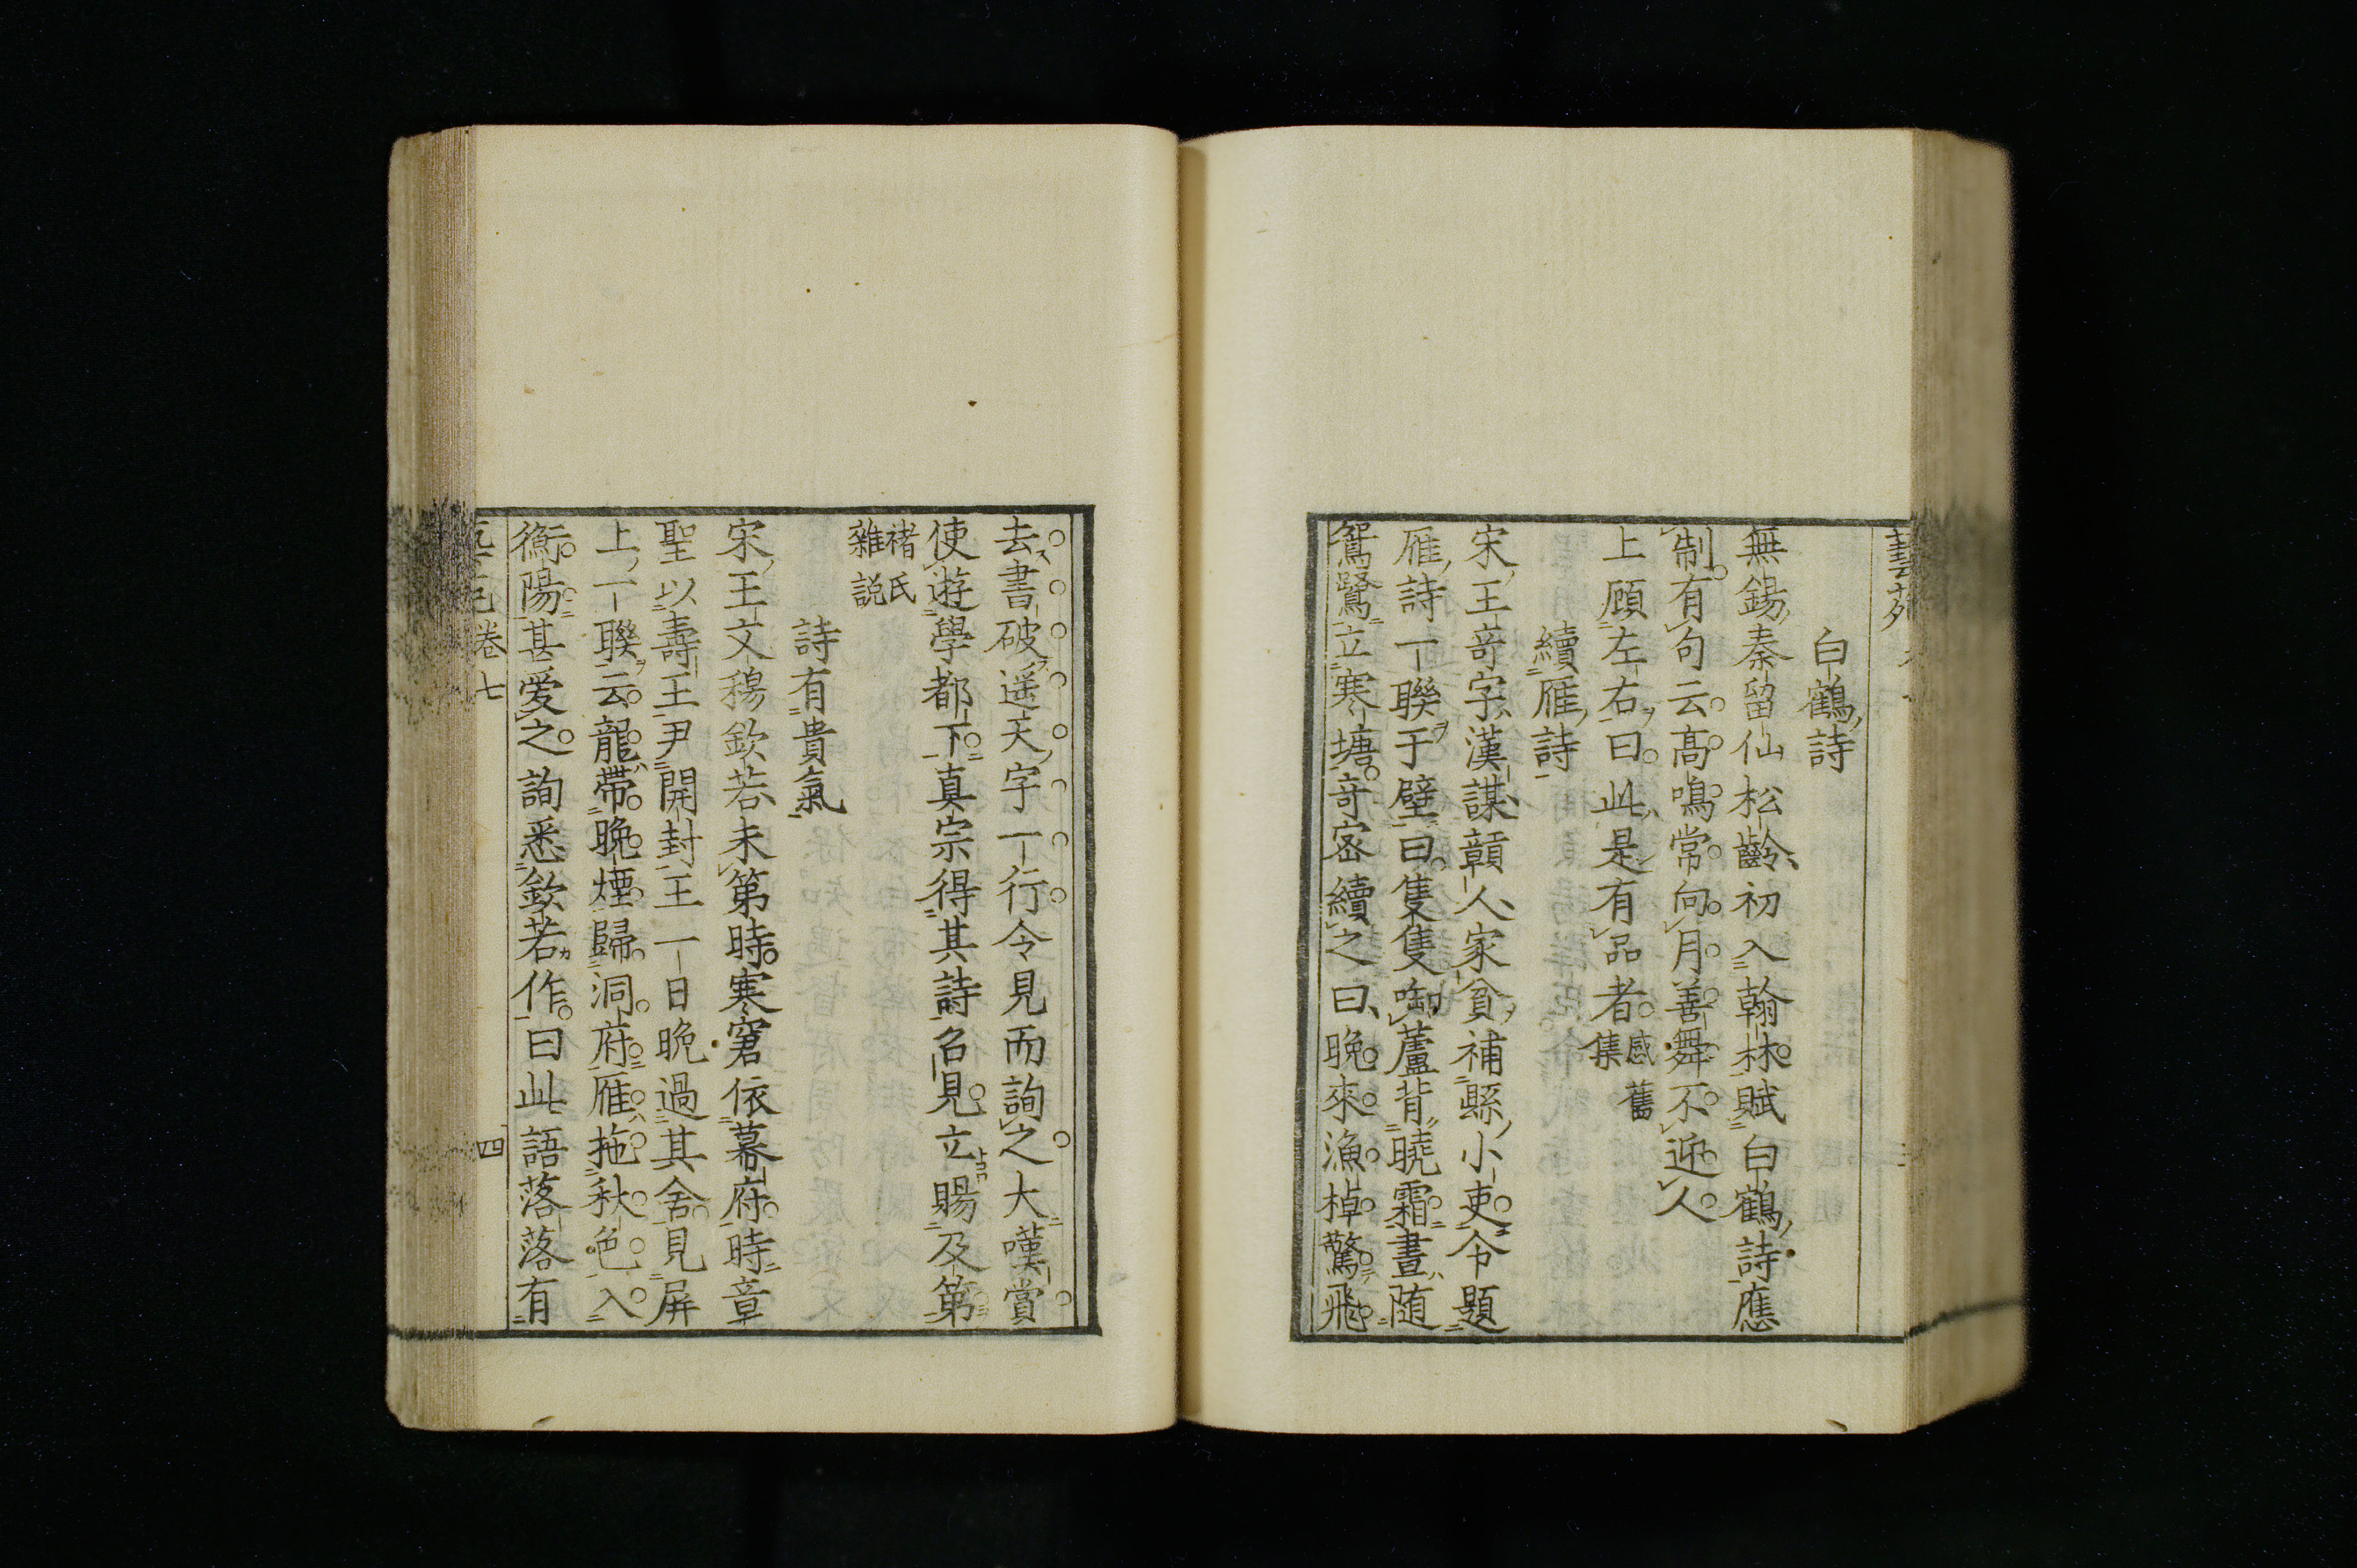 藝苑
白鶴詩
無錫秦留仙松齡初入翰林賦白鶴詩應
制有句云高鳴常向月善舞不迎人
上顧左右曰此是有品者感舊集
續雁詩
宋王竒字漢謀贛人家貧補縣小吏令題
雁詩一聯于壁曰隻隻㗸蘆背曉霜晝随
鴛鷺立寒塘竒密續之曰晩來漁棹驚飛
去書破遥天字一行令見而詢之大嘆賞
使遊學都下真宗得其詩召見立賜及第
褚氏雜説
詩有貴氣
宋王文穆欽若未第時寒窘依幕府時章
聖以壽王尹開封王一日晩過其舍見屏
上一聯云龍帶晩煙歸洞府雁拖秋色入
衡陽甚愛之詢悉欽若作曰此語落落有
卷七
四